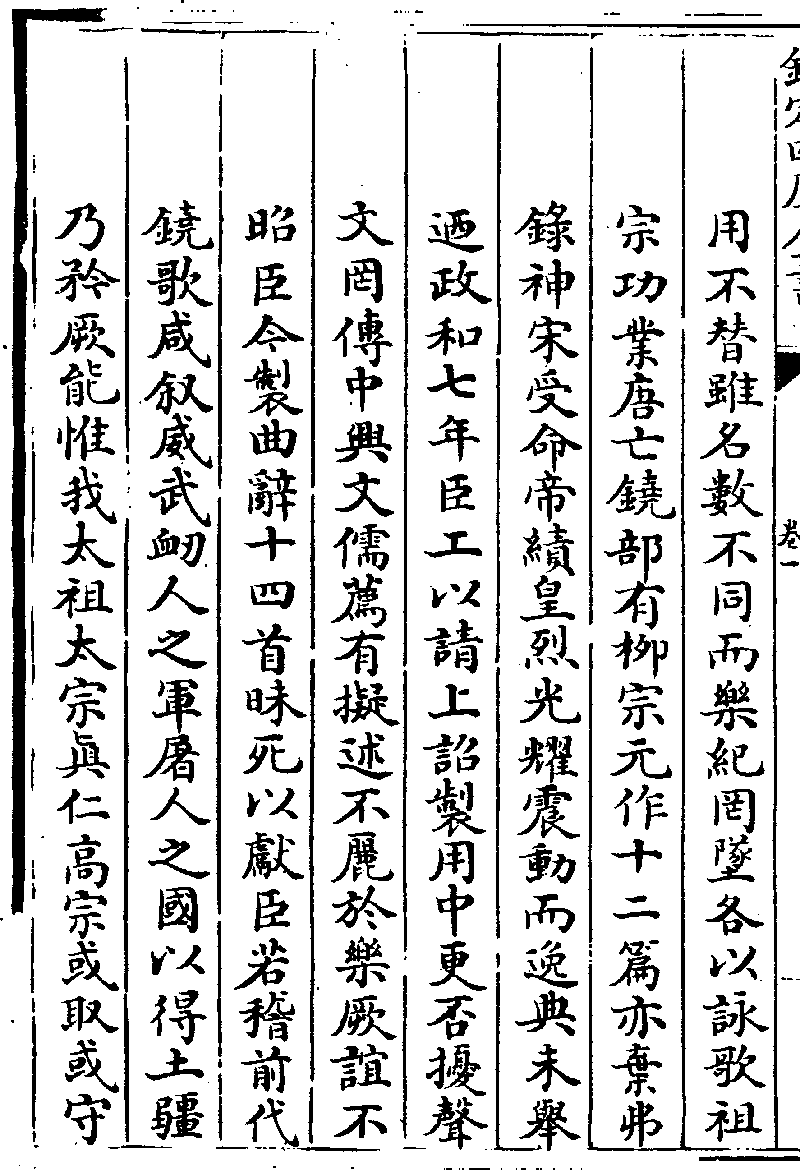 卷一
用不替雖名數不同而樂紀罔墜各以詠歌祖
宗功業唐亡鐃部有柳宗元作十二篇亦棄弗
錄神宋受命帝績皇烈光耀震動而逸典未舉
迺政和七年臣工以請上詔製用中更否擾聲
文罔傳中興文儒薦有擬述不麗於樂厥誼不
昭臣今製曲辭十四首昧死以獻臣若稽前代
鐃歌咸叙威武衂人之軍屠人之國以得土疆
乃矜厥能惟我太祖太宗眞仁高宗或取或守